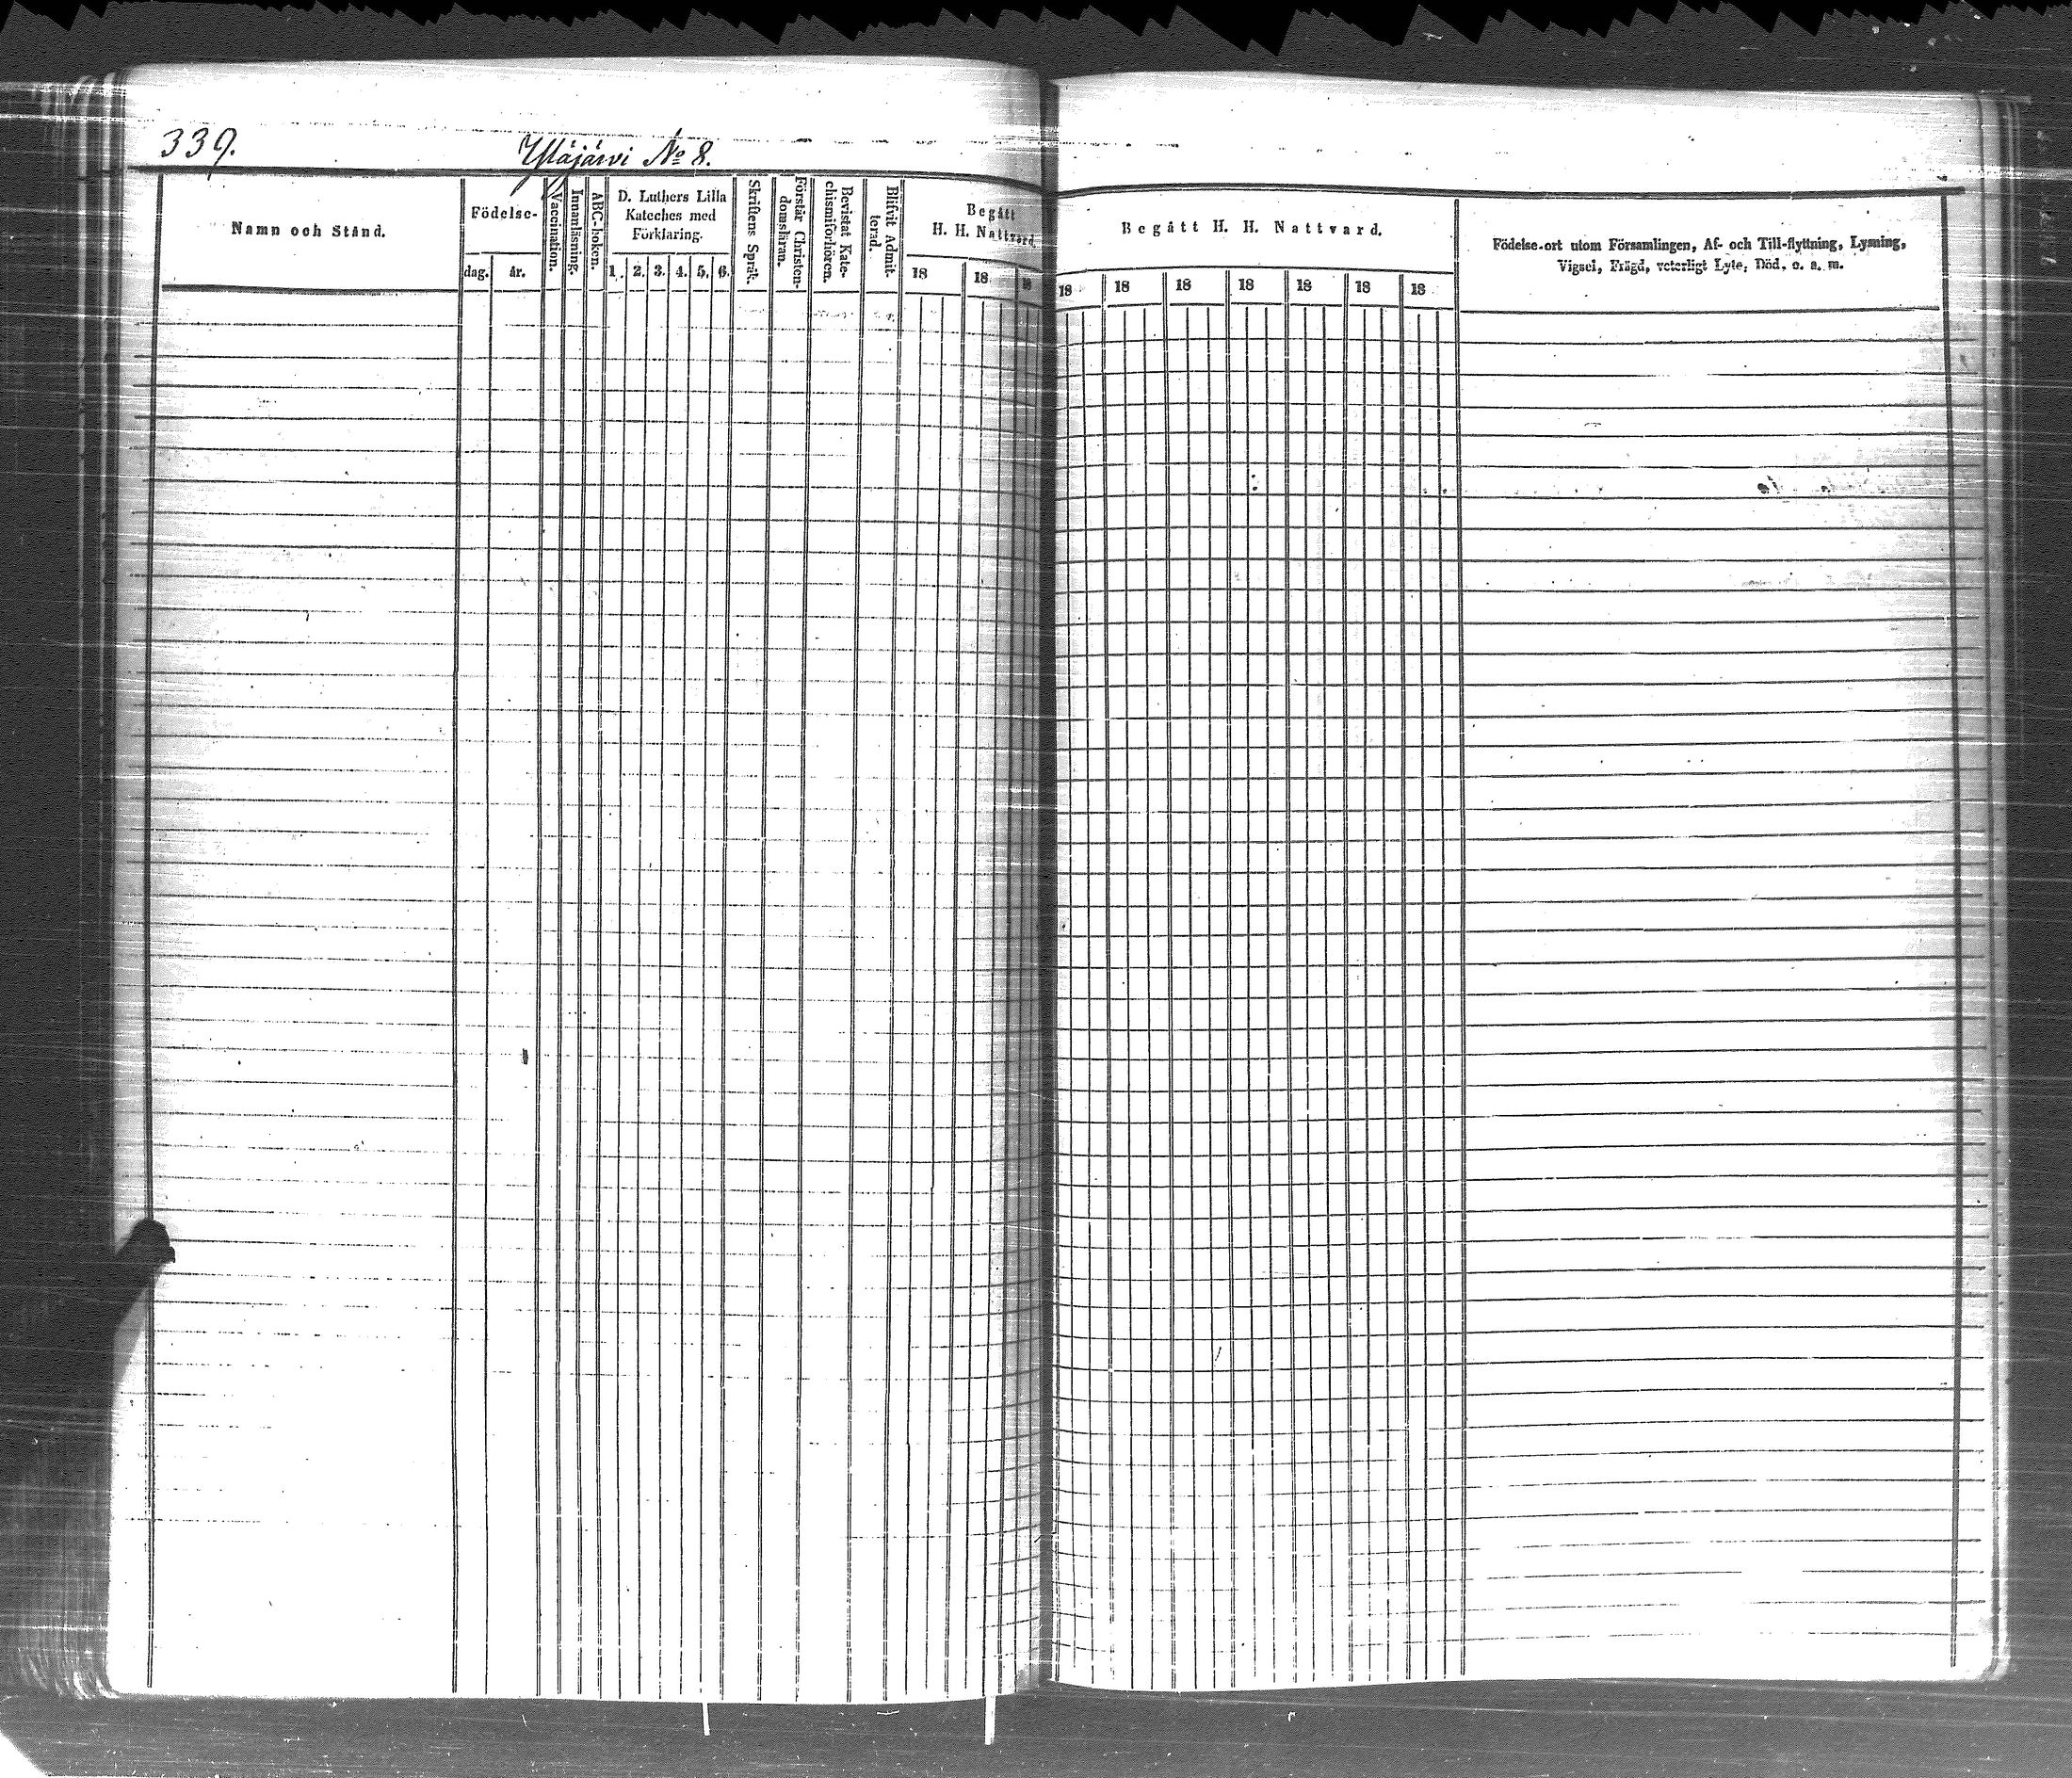 339.
Yläjärvi № 8.
Namn och Stånd.
Födelse-
dag.
år.
Vaccination.
Innanläsning.
ABC-boken.
D. Luthers Lilla
Kateches med
Förklaring.
1. 2. 3. 4. 5. 6.
Skriftens Språk.
Förstår Christen-
domsläran.
Bevistat Kate-
chismiförhören.
Blifvit Admit-
terad.
Begått
H. H. Nattvard.
18 18 18
Begått H. H. Nattvard.
18 18 18 18 18 18 18
Födelse-ort utom Församlingen, Af- och Till-flyttning, Lysning,
Vigsel, Frägd, veterligt Lyte, Död, o. s. m.